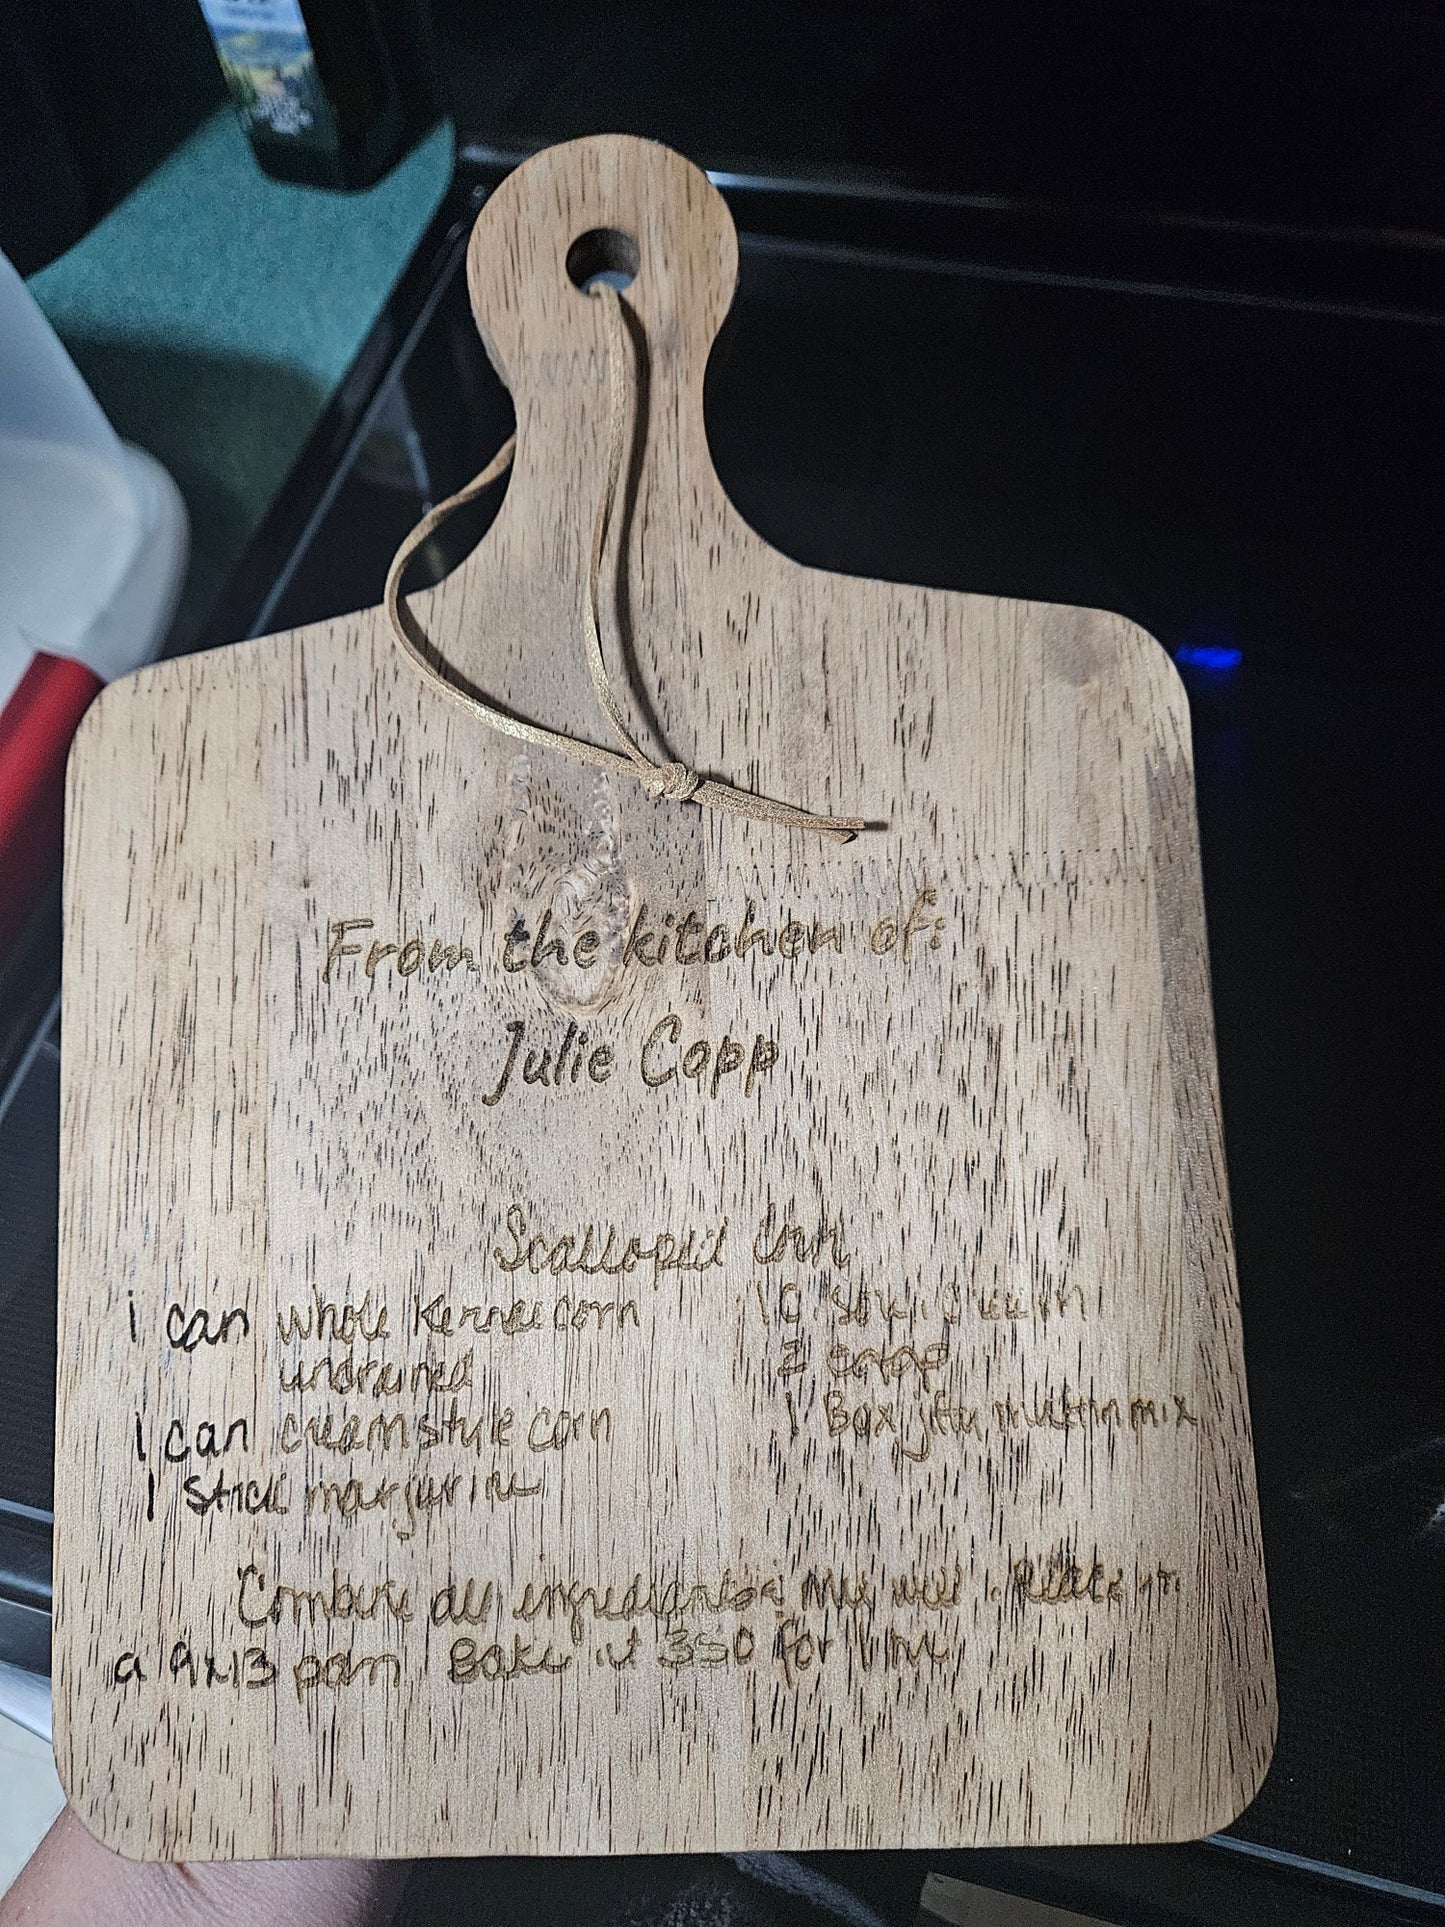 From the kitchen of:
Julie Copp
Scalloped Corn
1 can whole kernel corn
undrained
1 can creamstyle corn
1 stick margurine
1 C Sour Cream
2 eggs
1 Box jiffy muffin mix
Combine all ingredients & mix well. Place in
a 9x13 pan Bake at 350 for 1 hr